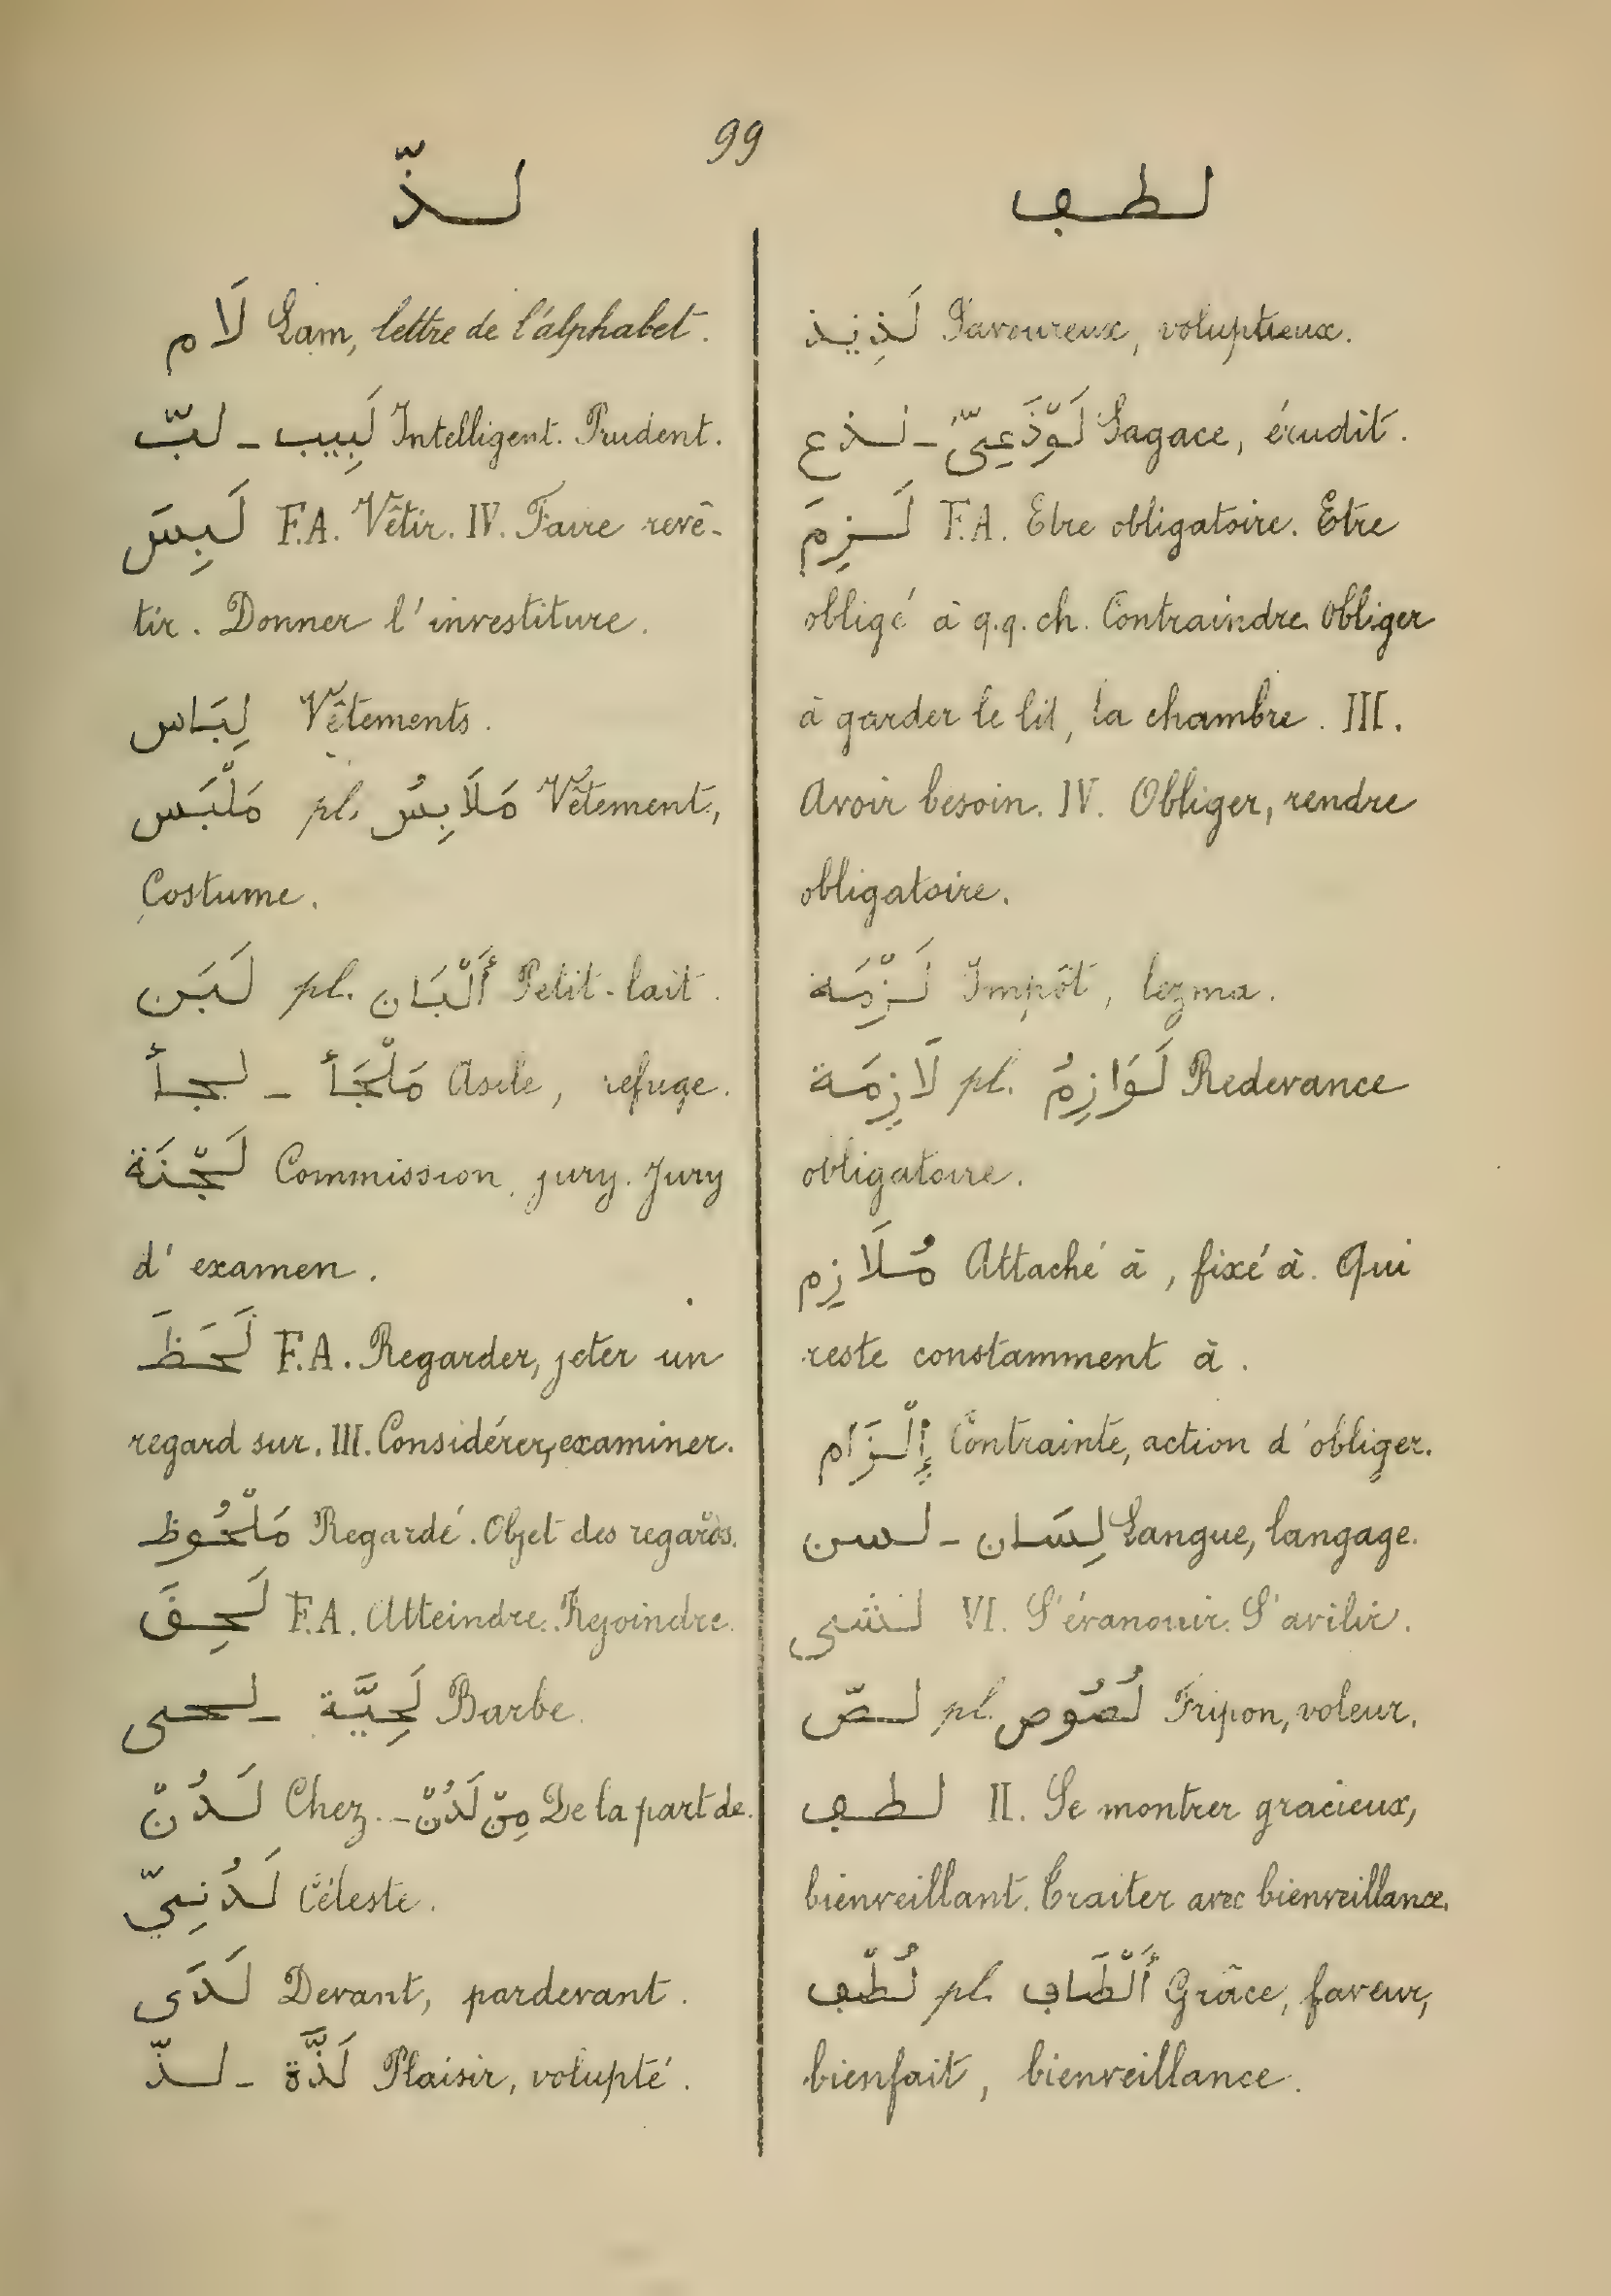 99
لذّ
لَام Lam, lettre de l'alphabet.
لبّ - لَبِيب Intelligent. Prudent.
لَبِسَ F.A. Vêtir. IV. Faire revê-
tir. Donner l'investiture.
لِبَاس Vêtements.
مَلْبَس pl. مَلَابِسُ Vêtement,
Costume.
لَبَن pl. أَلْبَان Petit-lait.
لجأ - مَلْجَأ Asile, refuge.
لَجْنَة Commission, jury. Jury
d'examen.
لَحَظَ F.A. Regarder, jeter un
regard sur. III. Considérer, examiner.
مَلْحُوظ Regardé. Objet des regards.
لَحِقَ F.A. Atteindre. Rejoindre.
لحى - لَحِيَّة Barbe.
لَدُنْ Chez. - مِنْ لَدُنْ De la part de.
لَدُنِيّ Céleste.
لَدَى Devant, pardevant.
لذّ - لَذَّة Plaisir, volupté.
لطڢ
لَذِيذ Savoureux, voluptueux.
لذع - لَوْذَعِيّ Sagace, érudit.
لَزِمَ F.A. Etre obligatoire. Etre
obligé à q.q. ch. Contraindre. Obliger
à garder le lit, la chambre. III.
Avoir besoin. IV. Obliger, rendre
obligatoire.
لَزْمَة Impôt, lezma.
لَازِمَة pl. لَوَازِمُ Redevance
obligatoire.
مُلَازِم Attaché à, fixé à. Qui
reste constamment à.
إِلْزَام Contrainte, action d'obliger.
لسن - لِسَان Langue, langage.
لشى VI. S'évanouir. S'avilir.
لصّ pl. لُصُوص Fripon, voleur.
لطڢ II. Se montrer gracieux,
bienveillant. Traiter avec bienveillance.
لُطْڢ pl. أَلْطَاڢ Grâce, faveur,
bienfait, bienveillance.